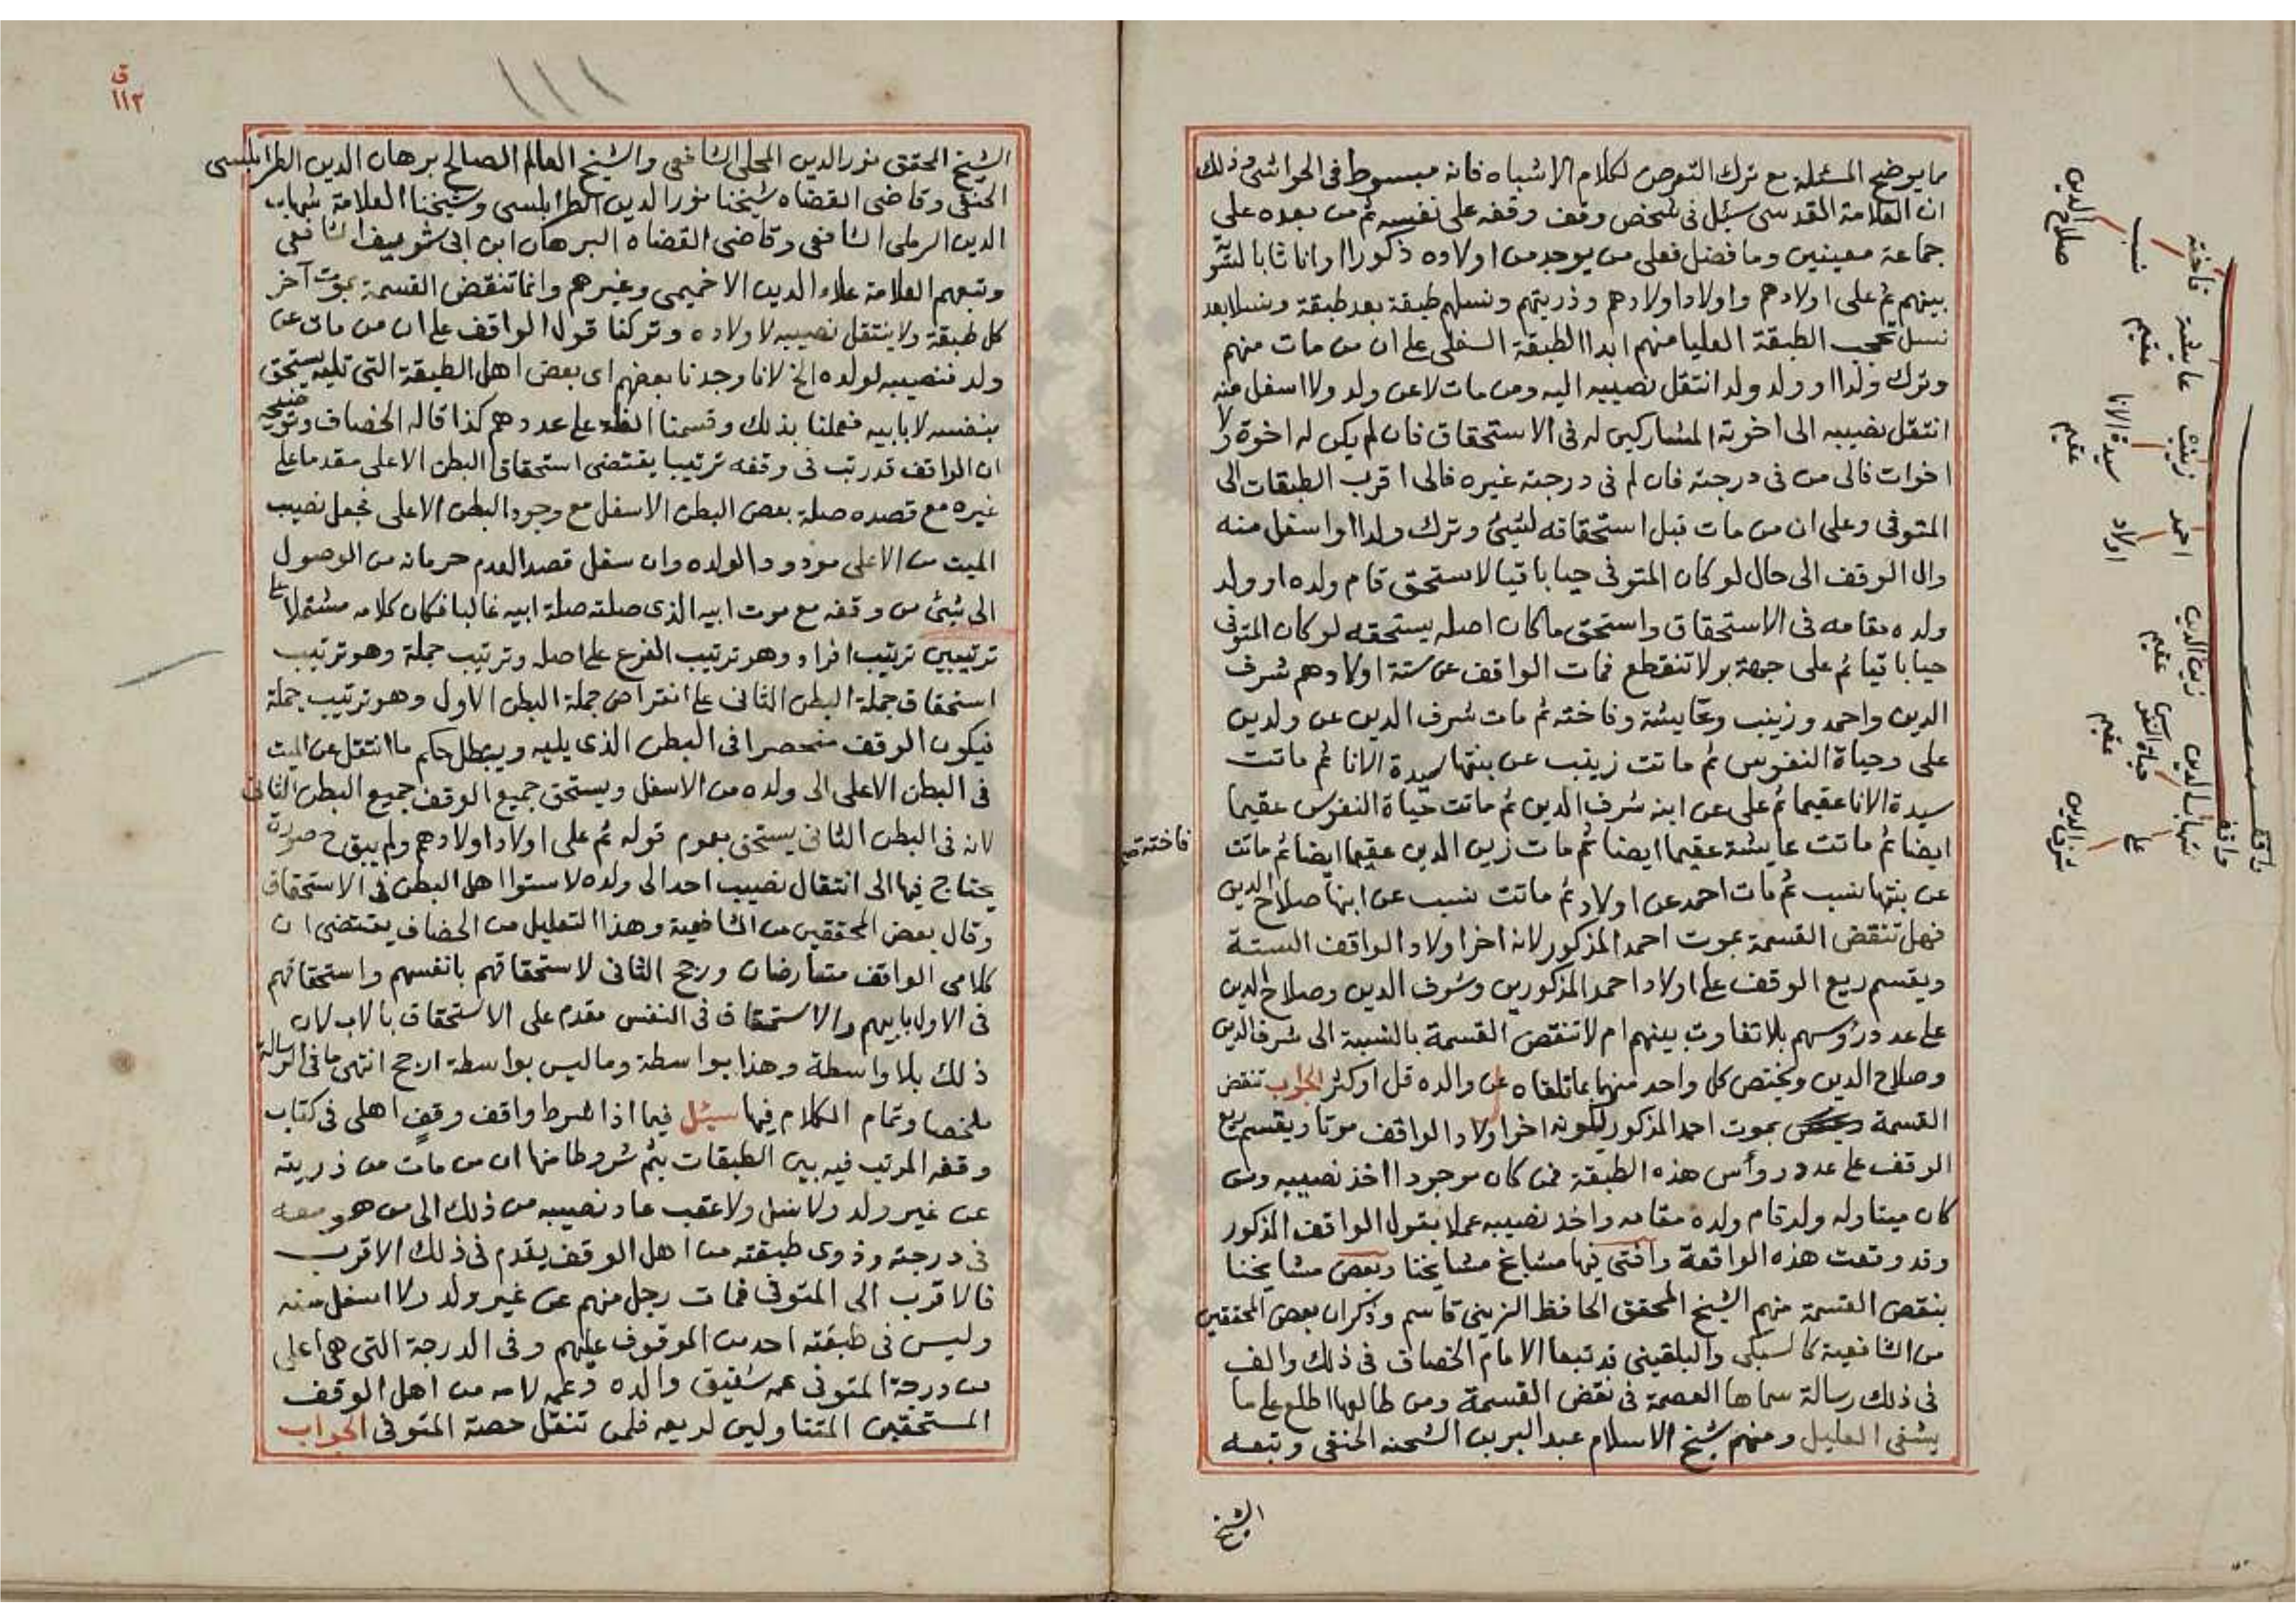 مما يوضح المسئلة مع ترك التعرض لكلام الاشباه فانه مبسوط فى الحواشى وذلك
ان العلامة المقدسى سئل فى شخص وقف وقفه على نفسه ثم من بعده على
جماعة معينين وما فضل فعلى من يوجد من اولاده ذكورا او اناثا بالسو
بينهم ثم على اولادهم واولاد اولادهم وذريتهم ونسلهم طبقة بعد طبقة ونسلا بعد
نسل تحجب الطبقة العليا منهم ابدا الطبقة السفلى على ان من مات منهم
وترك ولدا او ولد ولد انتقل نصيبه اليه ومن مات لا عن ولد ولا اسفل منه
انتقل نصيبه الى اخوته المشاركين له فى الاستحقاق فان لم يكن له اخوة ولا
اخوات فالى من فى درجته فان لم فى درجته غيره فالى اقرب الطبقات الى
المتوفى وعلى ان من مات قبل استحقاقه لشيئ وترك ولدا او اسفل منه
وال الوقف الى حال لو كان المتوفى حيا باقيا لاستحق قام ولده او ولد
ولده مقامه فى الاستحقاق واستحق ما كان اصله يستحقه لو كان المتوفى
حيا باقيا ثم على جهة بر لا تنقطع فمات الواقف عن ستة اولادهم شرف
الدين واحمد وزينب وعايشة وفاختة ثم مات شرف الدين عن ولدين
على وحياة النفوس ثم ماتت زينب عن بنتها سيدة الانا ثم ماتت
سيدة الانا عقيما ثم على عن ابنه شرف الدين ثم ماتت حياة النفوس عقيما
ايضا ثم ماتت عايشة عقيما ايضا ثم مات زين الدين عقيما ايضا ثم ماتت
فاختة صح
عن بنتها نسب ثم مات احمد عن اولاد ثم ماتت نسب عن ابنها صلاح الدين
فهل تنقض القسمة بموت احمد المذكور لانه اخر اولاد الواقف الستة
ويقسم ريع الوقف على اولاد احمد المذكورين وشرف الدين وصلاح الدين
على عدد رؤسهم بلا تفاوت بينهم ام لا تنقض القسمة بالنسبة الى شرف الدين
وصلاح الدين ويختص كل واحد منهما بما تلقاه عن والده قل او كثر الجواب تنقض
القسمة بموت احمد المذكور لكونه اخر اولاد الواقف موتا ويقسم ريع
الوقف على عدد روأس هذه الطبقة فمن كان موجودا اخذ نصيبه ومن
كان ميتا وله ولد قام ولده مقامه واخذ نصيبه عملا بقول الواقف المذكور
وقد وقعت هذه الواقعة وافتى فيها مشايخ مشايخنا وبعض مشايخنا
بنقض القسمة منهم الشيخ المحقق الحافظ الزينى قاسم وذكر ان بعض المحققين
من الشافعية كالسبكى والبلقينى قد تبعا الامام الخصاف فى ذلك والف
فى ذلك رسالة سماها العصمة فى نقض القسمة ومن طالعها اطلع على ما
يشفى العليل ومنهم شيخ الاسلام عبد البر بن الشحنه الحنفى وتبعه
الشيخ
واقف
واقف
فاختة
عايشة
زينب
احمد
زين الدين
شهاب الدين
نسب
عقيم
سيدة الانا
اولاد
عقيم
حياة النفوس
على
صلاح الدين
عقيم
عقيم
شرف الدين
ق
١١٢
١١١
الشيخ المحقق نور الدين المحلى الشافعى والشيخ العالم الصالح برهان الدين الطرابلسى
الحنفى وقاضى القضاه شيخنا نور الدين الطرابلسى وشيخنا العلامة شهاب
الدين الرملى الشافعى وقاضى القضاه البرهان ابن ابى شريف الشافعى
وتبعهم العلامة علاء الدين الاخميمى وغيرهم وانما تنقض القسمة بموت آخر
كل طبقة ولا ينتقل نصيبه لاولاده وتركنا قول الواقف على ان من مات عن
ولد فنصيبه لولده الخ لانا وجدنا بعضهم اى بعض اهل الطبقة التى تليه يستحق
بنفسه لا بابيه فعملنا بذلك وقسمنا الغلة على عددهم كذا قاله الخصاف وتوضيحه
ان الواقف قد رتب فى وقفه ترتيبا يقتضى استحقاق البطن الاعلى مقدما على
غيره مع قصده صلة بعض البطن الاسفل مع وجود البطن الاعلى فجعل نصيب
الميت من الاعلى مردودا لولده وان سفل قصد العدم حرمانه من الوصول
الى شيئ من وقفه مع موت ابيه الذى صلته صلة ابيه غالبا فكان كلامه مشتملا على
ترتيبين ترتيب افراد وهو ترتيب الفرع على اصله وترتيب جملة وهو ترتيب
استحقاق جملة البطن الثانى على انقراض جملة البطن الاول وهو ترتيب جملة
فيكون الوقف منحصرا فى البطن الذى يليه ويبطل حكم ما انتقل عن الميت
فى البطن الاعلى الى ولده من الاسفل ويستحق جميع الوقف جميع البطن الثانى
لانه فى البطن الثانى يستحق بعموم قوله ثم على اولاد اولادهم ولم يبق ح صورة
يحتاج فيها الى انتقال نصيب احد الى ولده لاستوا اهل البطن فى الاستحقاق
وقال بعض المحققين من الشافعية وهذا التعليل من الخصاف يقتضى ان
كلامى الواقف متعارضان ورجح الثانى لاستحقاقهم بانفسهم واستحقاقهم
فى الاول بابيهم والاستحقاق فى النفس مقدم على الاستحقاق بالاب لان
ذلك بلا واسطة وهذا بواسطة وما ليس بواسطة ارجح انتهى ما فى الرسالة
ملخصا وتمام الكلام فيها سئل فيما اذا شرط واقف وقف اهلى فى كتاب
وقفه المرتب فيه بين الطبقات بثم شروطا منها ان من مات من ذريته
عن غير ولد ولا نسل ولا عقب عاد نصيبه من ذلك الى من هو معه
فى درجته وذوى طبقته من اهل الوقف يقدم فى ذلك الاقرب
فالاقرب الى المتوفى فمات رجل منهم عن غير ولد ولا اسفل منه
وليس فى طبقته احد من الموقوف عليهم وفى الدرجة التى هى اعلى
من درجة المتوفى عمه شقيق والده وعمه لامه من اهل الوقف
المستحقين المتناولين لريعه فلمن تنتقل حصة المتوفى الجواب